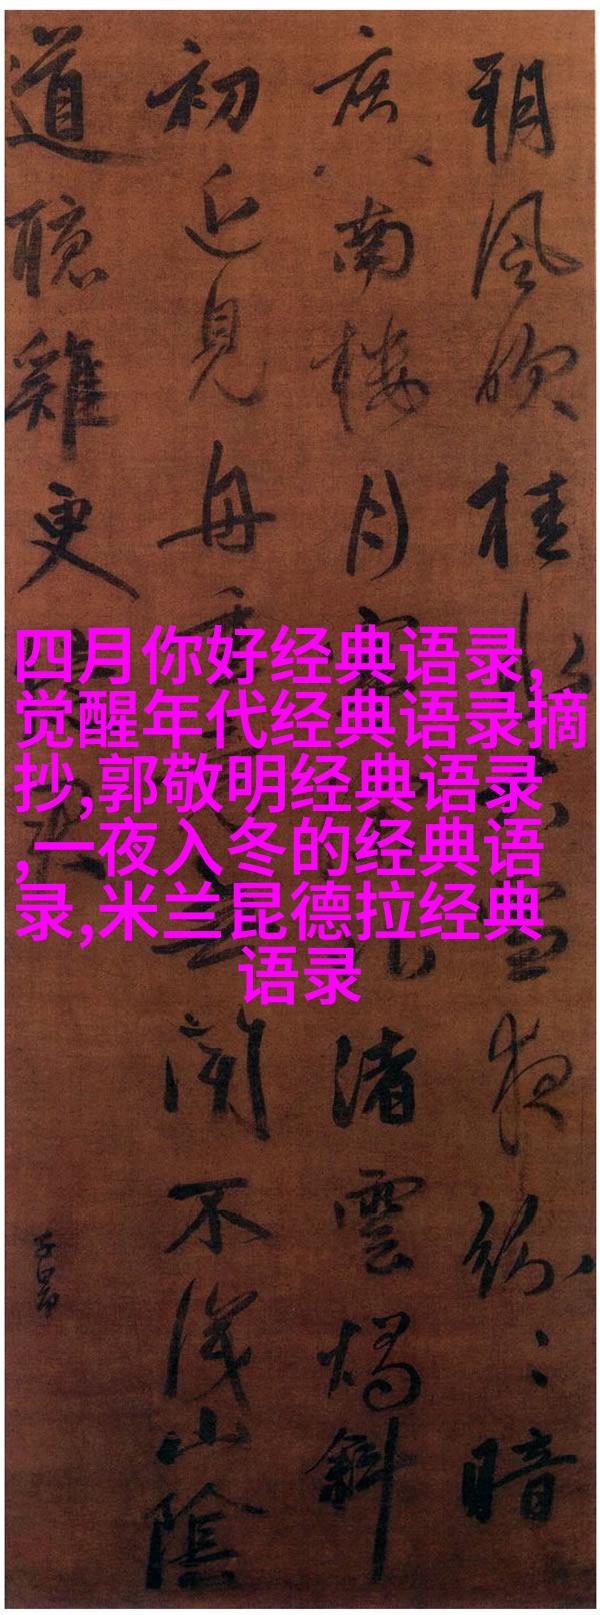 朔風吹桂水夜紛〻暗
度南樓月渚雲燭斜
初近見舟聞不識山陰
道聽雞更
子昂
四月你好经典语录,
觉醒年代经典语录摘
抄,郭敬明经典语录
,一夜入冬的经典语
录,米兰昆德拉经典
语录